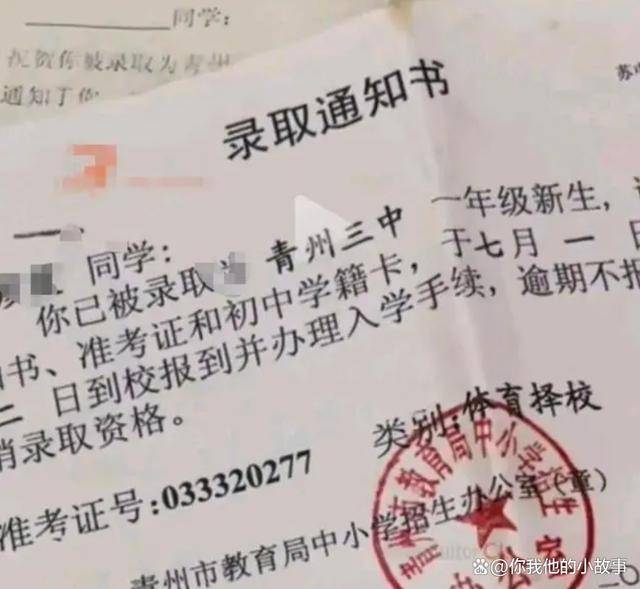 同学:
祝贺你被录取为青州
通知于你
苏
录取通知书
同学:
青州三中 一年级新生,
你已被录取 于七月一日
书、准考证和初中学籍卡,
二 日到校报到并办理入学手续,逾期不报
消录取资格。
类别:体育择校
准考证号:033320277
青州市教育局中小学招生办公室(章)
青州市教育局中小学招生
@你我他的小故事